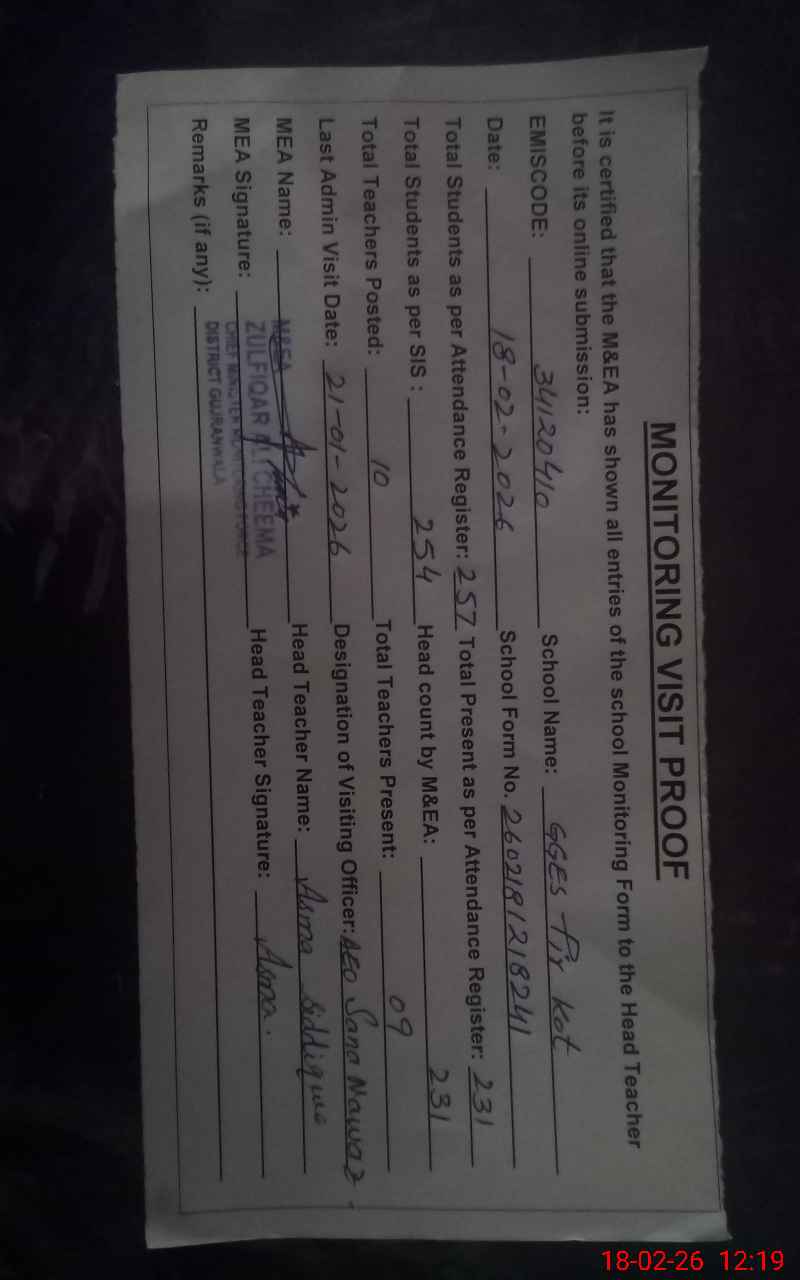 MONITORING VISIT PROOF
It is certified that the M&EA has shown all entries of the school Monitoring Form to the Head Teacher
before its online submission:
EMISCODE: 34120410 School Name: GGES Pir Kot
Date: 18-02-2026 School Form No. 2602181218241
Total Students as per Attendance Register: 257 Total Present as per Attendance Register: 231
Total Students as per SIS : 254 Head count by M&EA: 231
Total Teachers Posted: 10 Total Teachers Present: 09
Last Admin Visit Date: 21-01-2026 Designation of Visiting Officer: AEO Sana Nawaz
MEA Name: Head Teacher Name: Asma Siddique
MEA Signature: Head Teacher Signature: Asma.
Remarks (if any):
M&EA
ZULFIQAR ALI CHEEMA
CHIEF MINISTER MONITORING FORCE
DISTRICT GUJRANWALA
18-02-26 12:19